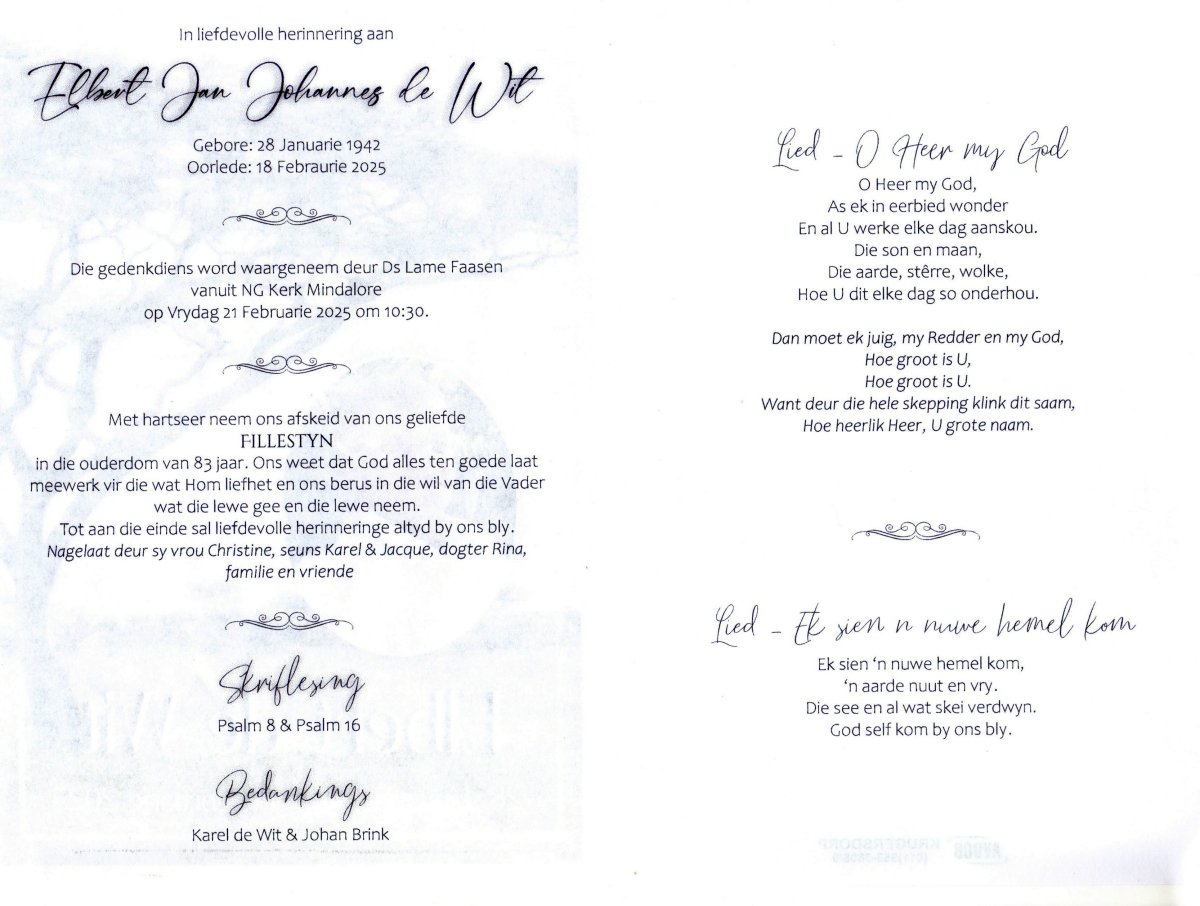 In liefdevolle herinnering aan
Elbert Jan Johannes de Wit
Gebore: 28 Januarie 1942
Oorlede: 18 Febraurie 2025
Die gedenkdiens word waargeneem deur Ds Lame Faasen
vanuit NG Kerk Mindalore
op Vrydag 21 Februarie 2025 om 10:30.
Met hartseer neem ons afskeid van ons geliefde
FILLESTYN
in die ouderdom van 83 jaar. Ons weet dat God alles ten goede laat
meewerk vir die wat Hom liefhet en ons berus in die wil van die Vader
wat die lewe gee en die lewe neem.
Tot aan die einde sal liefdevolle herinneringe altyd by ons bly.
Nagelaat deur sy vrou Christine, seuns Karel & Jacque, dogter Rina,
familie en vriende
Skriflesing
Psalm 8 & Psalm 16
Bedankings
Karel de Wit & Johan Brink
Lied - O Heer my God
O Heer my God,
As ek in eerbied wonder
En al U werke elke dag aanskou.
Die son en maan,
Die aarde, stêrre, wolke,
Hoe U dit elke dag so onderhou.
Dan moet ek juig, my Redder en my God,
Hoe groot is U,
Hoe groot is U.
Want deur die hele skepping klink dit saam,
Hoe heerlik Heer, U grote naam.
Lied - Ek sien n nuwe hemel kom
Ek sien ‘n nuwe hemel kom,
‘n aarde nuut en vry.
Die see en al wat skei verdwyn.
God self kom by ons bly.
AVBOB KRUGERSDORP